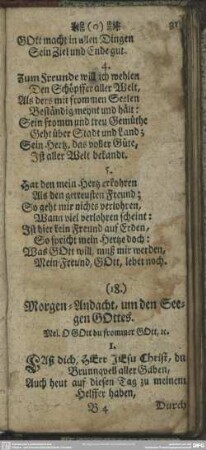 (0)
GOtt macht in allen Dingen
Sein Ziel und Ende gut.
4.
Zum Freunde will ich wehlen
Den Schöpffer aller Welt,
Als ders mit frommen Seelen
Beständig meynt und hält:
Sein fromm und treu Gemüthe
Geht über Stadt und Land;
Sein Hertz, das voller Güte,
Ist aller Welt bekandt.
5.
Hat den mein Hertz erkohren
Als den getreusten Freund;
So geht mir nichts verlohren,
Wann viel verlohren scheint:
Ist hier kein Freund auf Erden,
So spricht mein Hertze doch:
Was GOtt will, muß mir werden,
Mein Freund, GOtt, lebet noch.
(18.)
Morgen-Andacht, um den See-
gen GOttes.
Mel. O GOtt du frommer GOtt, ꝛc.
1.
LAß dich, HErr JEsu Christ, du
Brunnqvell aller Gaben,
Auch heut auf diesen Tag zu meinem
Helffer haben,
B 4 Durch